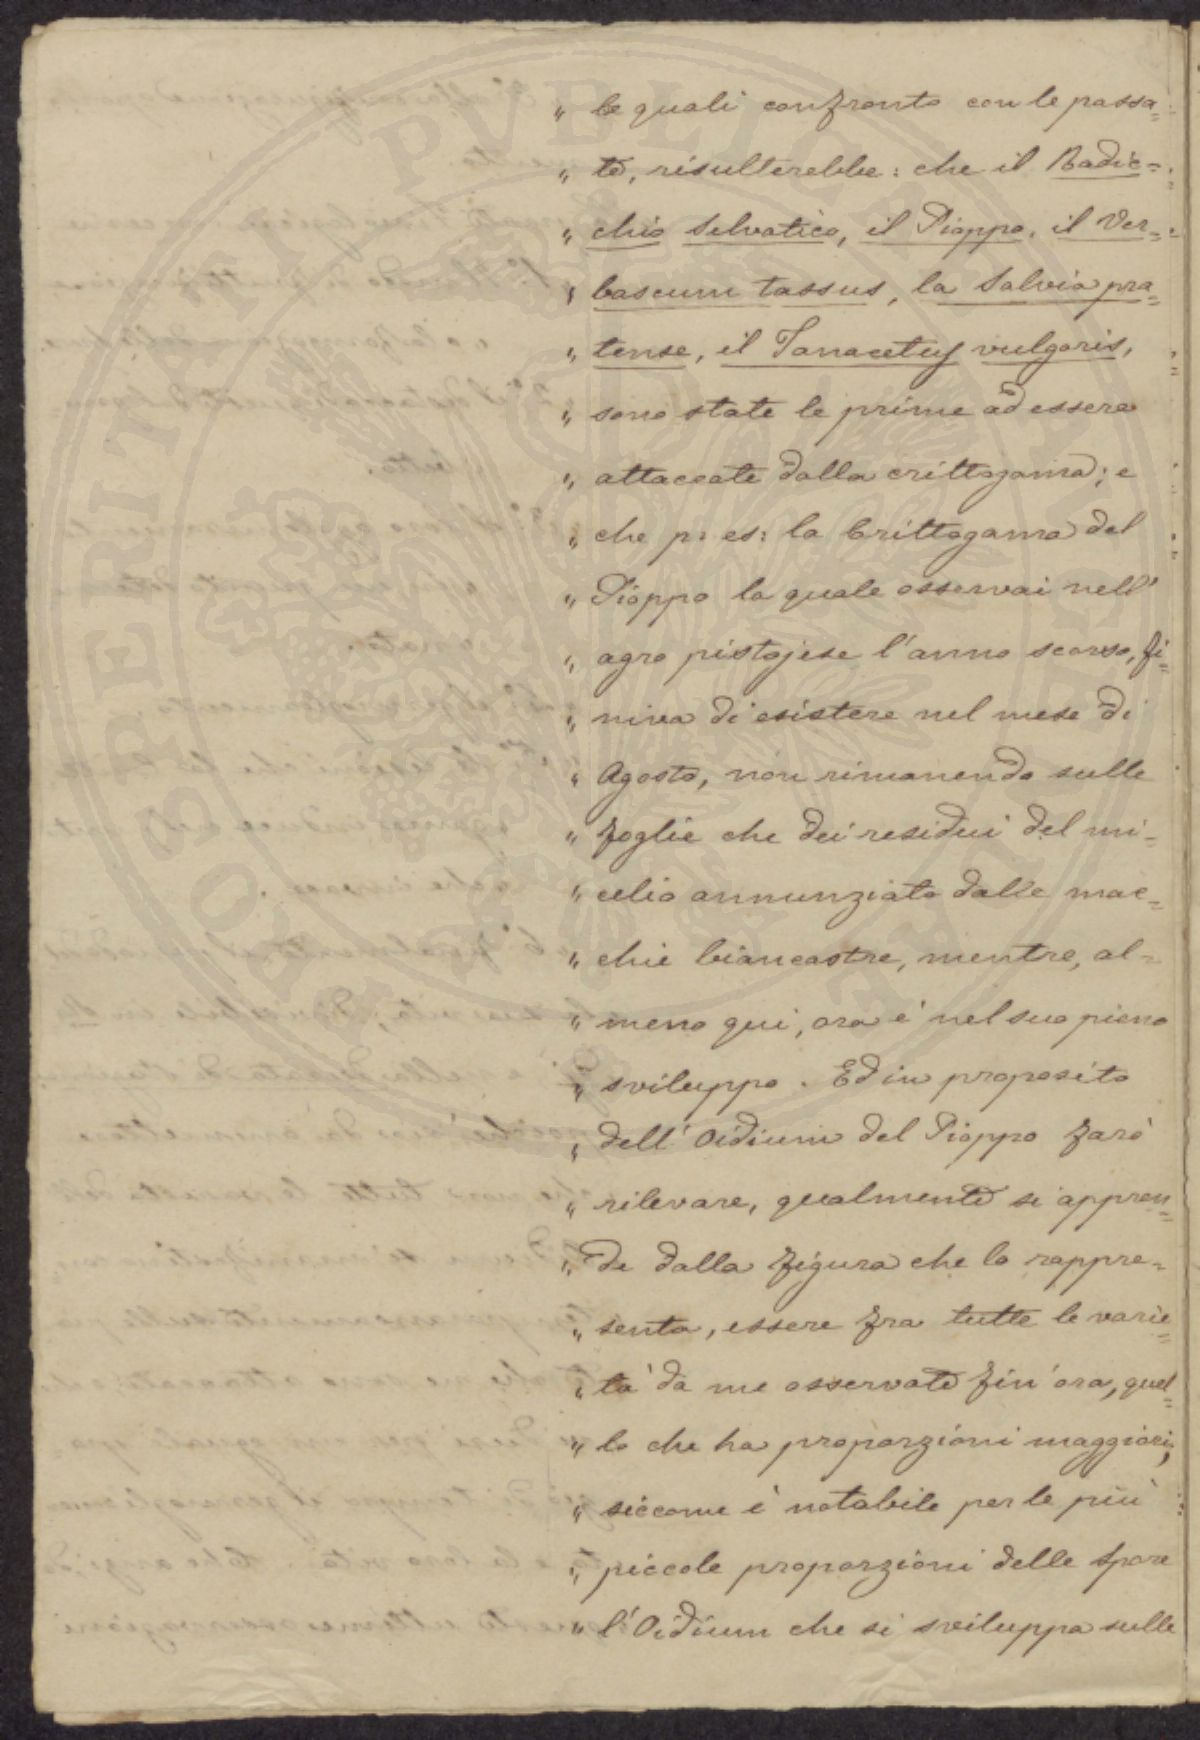 " le quali confronto con le passa=
" te, risulterebbe: che il Radic=
" chio Selvatico, il Pioppo, il Ver=
" bascum tassus, la Salvia pra=
" tense, il Tanacetuf vulgaris,
" sono state le prime ad essere
" attaccate dalla crittogama; e
" che p: es: la Crittogama del
" Pioppo la quale osservai nell'
" agro pistojese l'anno scorso, fi=
" niva di esistere nel mese di
" Agosto, non rimanendo sulle
" foglie che dei residui del mi=
" celio annunziato dalle mac=
" chie biancastre, mentre, al=
" meno qui, ora è nel suo pieno
" sviluppo. Ed in proposito
" dell'Oidium del Pioppo farò
" rilevare, qualmente si appren=
" de dalla figura che lo rappre=
" senta, essere fra tutte le varie=
" tà da me osservate fin'ora, quel=
" lo che ha proporzioni maggiori;
" siccome è notabile per le più
" piccole proporzioni delle Spore
" l'Oidium che si sviluppa sulle